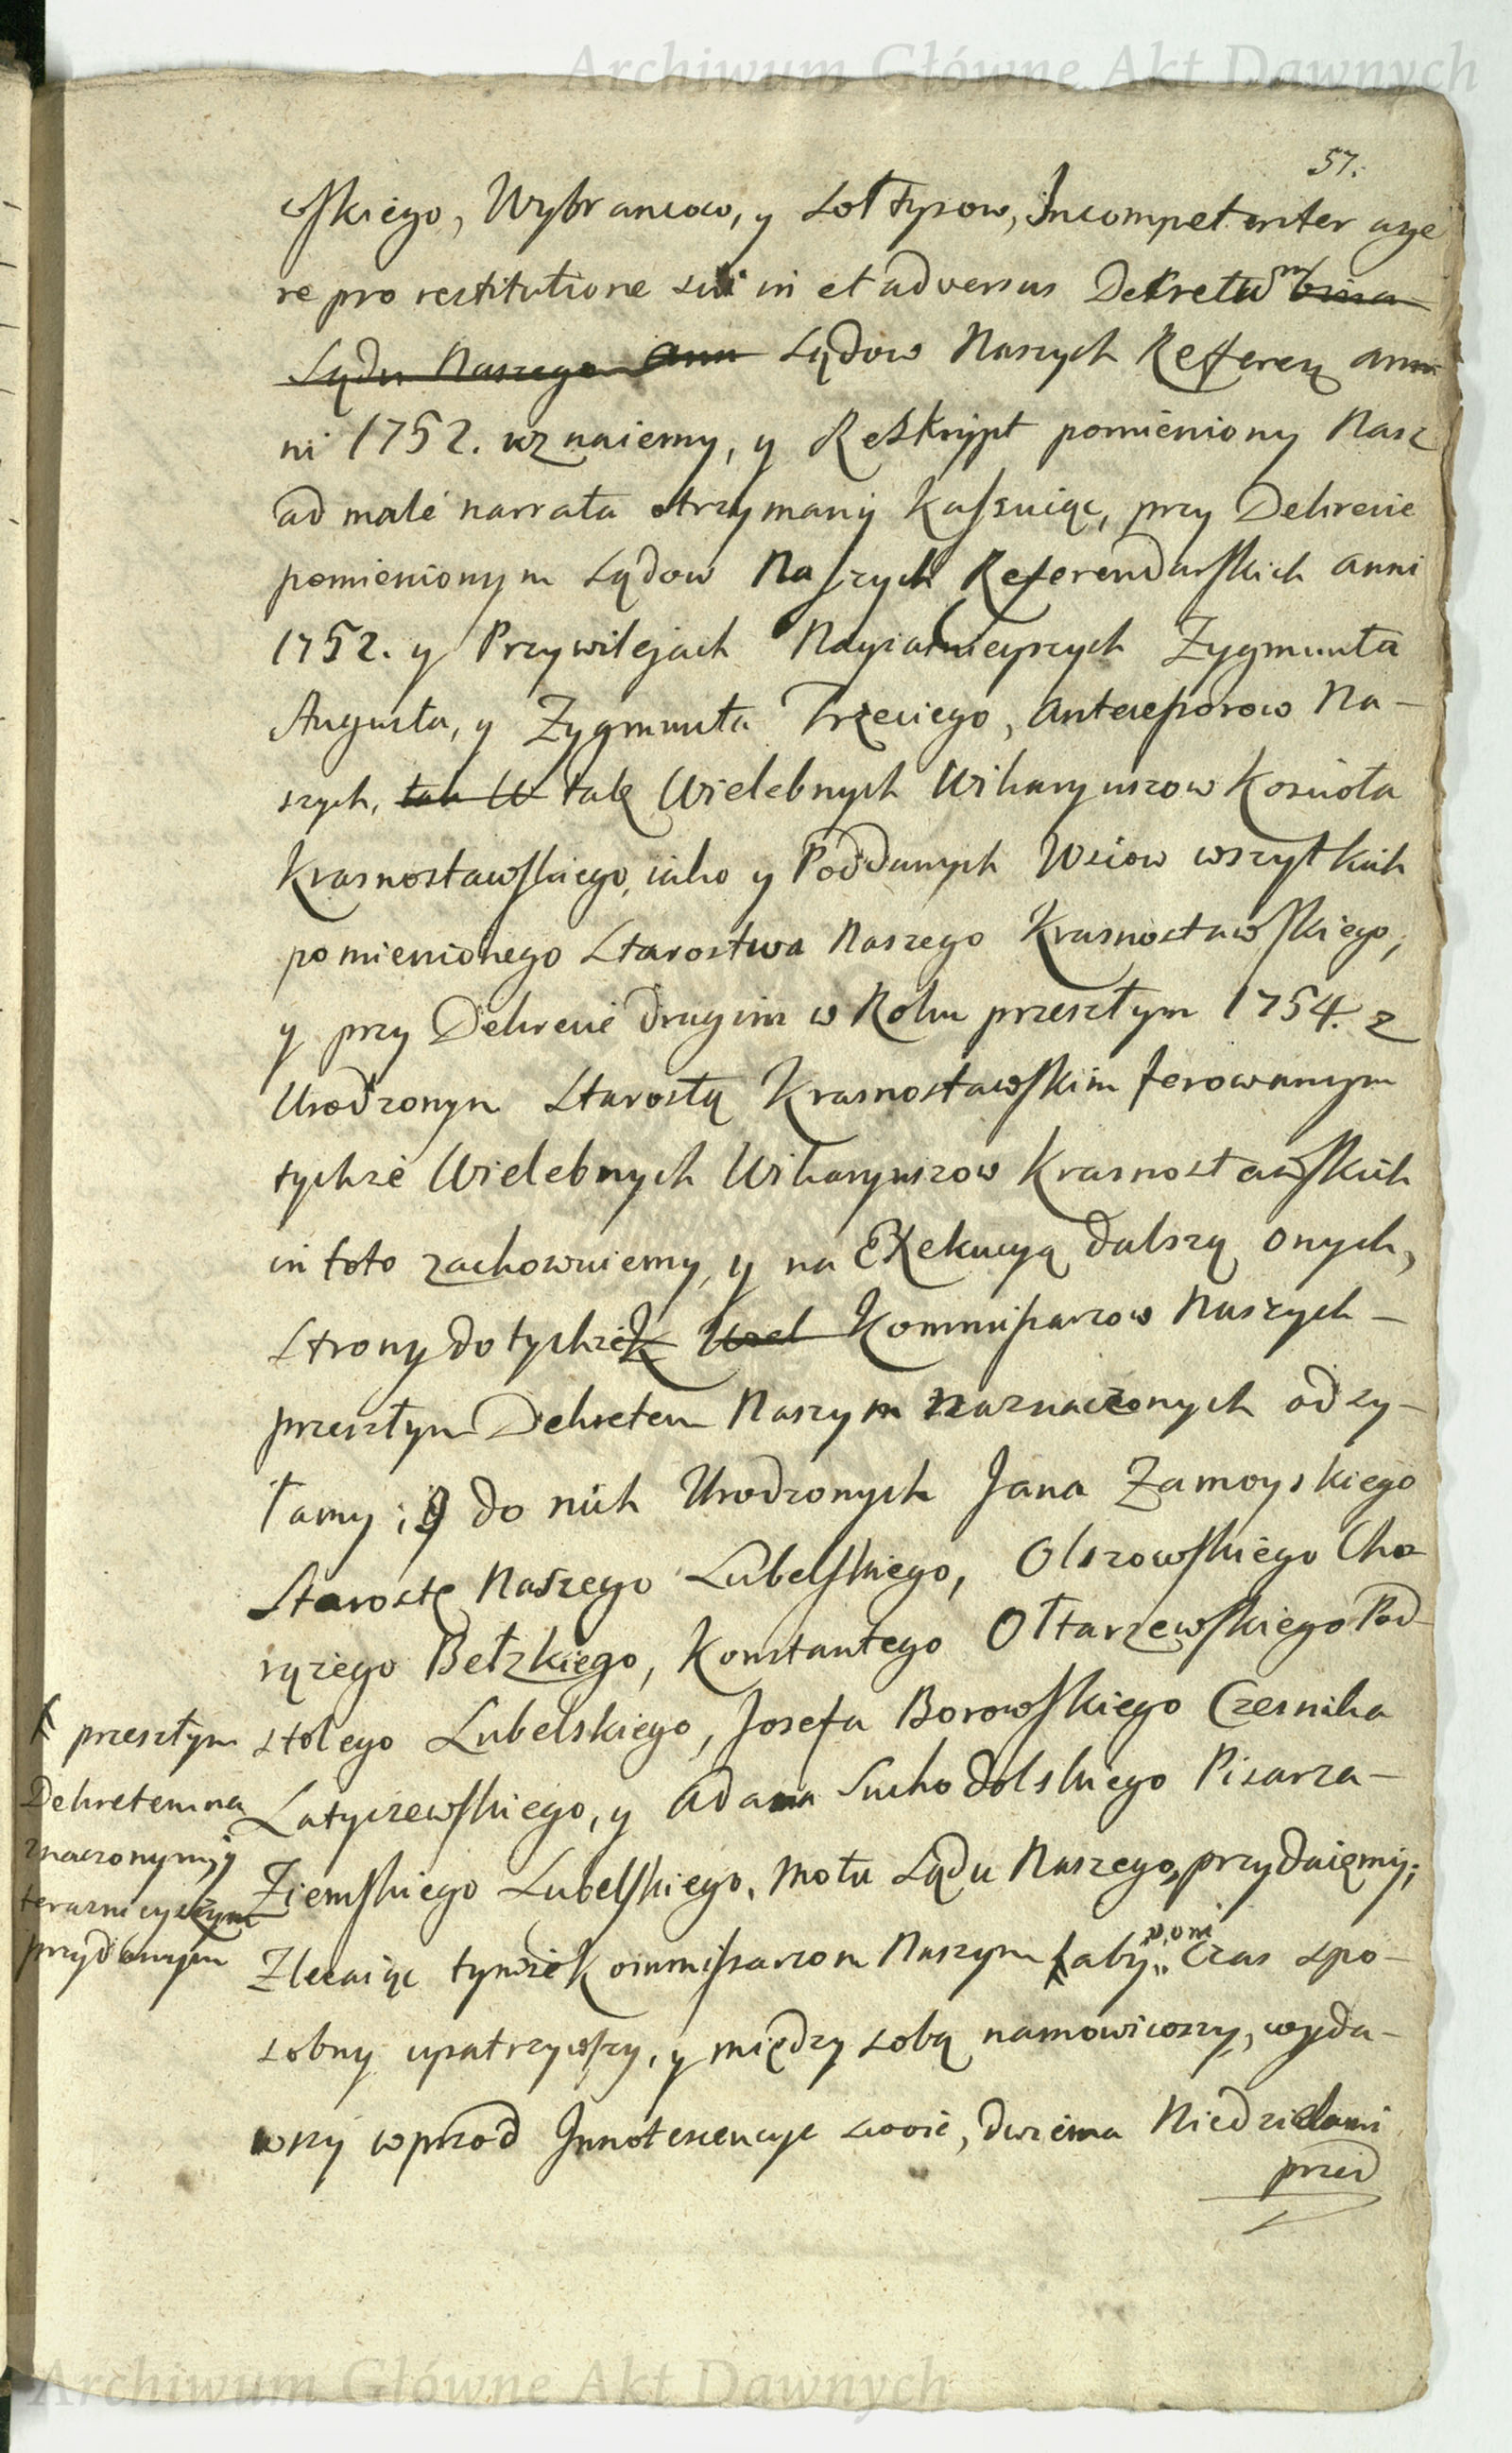 Archiwum Główne Akt Dawnych
57.
wskiego, Wybrancow, y Sołtysow, Incompetenter age
re pro restitutione sui in et adversus Dekretu m bina
Sądu Naszego Ann Sądow Naszych Referen ann
ni 1752. uznaiemy, y Reskrypt pomieniony Nasz
ad malè narrata otrzymany kassuiąc, przy Dekrecie
pomienionym Sądow Naszych Referendarskich anni
1752. y Przywilejach Nayiasnieyszych Zygmunta
Augusta, y Zygmunta Trzeciego, Antecessorow Na-
szych, tak W tak Wielebnych Wikaryuszow Kościoła
Krasnostawskiego, iako y Poddanych Wsiow wszytkich
pomienionego Starostwa Naszego Krasnostawskiego,
y przy Dekrecie drugim w Roku przeszłym 1754. z
Urodzonym Starostą Krasnostawskim ferowanym
tychże Wielebnych Wikaryuszow Krasnostawskich
in toto zachowuiemy, y na Exekucyą dalszą onych,
Strony do tychże K Urod Kommissarzow Naszych-
przeszłym Dekretem Naszym naznaczonych odsy-
łamy; y do nich Urodzonych Jana Zamoyskiego
Starostę Naszego Lubelskiego, Olszowskiego Cho-
rązego Bełzkiego, Konstantego Ołtarzewskiego Pod-
stolego Lubelskiego, Josefa Borowskiego Czesnika
Latyczewskiego, y Adama Suchodolskiego Pisarza-
Ziemskiego Lubelskiego, motu Sądu Naszego, przydaięmy;
Zlecaiąc tymże Kommissarzom Naszym aby oni czas spo-
sobny upatrzywszy, y między sobą namowiwszy, wyda-
wszy wprzod Innotescencye swoie, dwiema Niedzielami
przed
przeszłym
Dekretem na
znaczonym, y
teraznieyszym
przydanym
Archiwum Główne Akt Dawnych